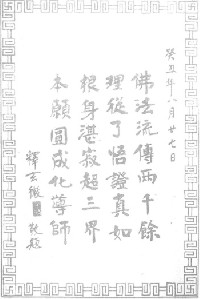 癸丑年八月廿七日
佛法流傳兩千餘
理從了悟證真如
根身湛寂超三界
本願圓成化導師
釋玄
敬題